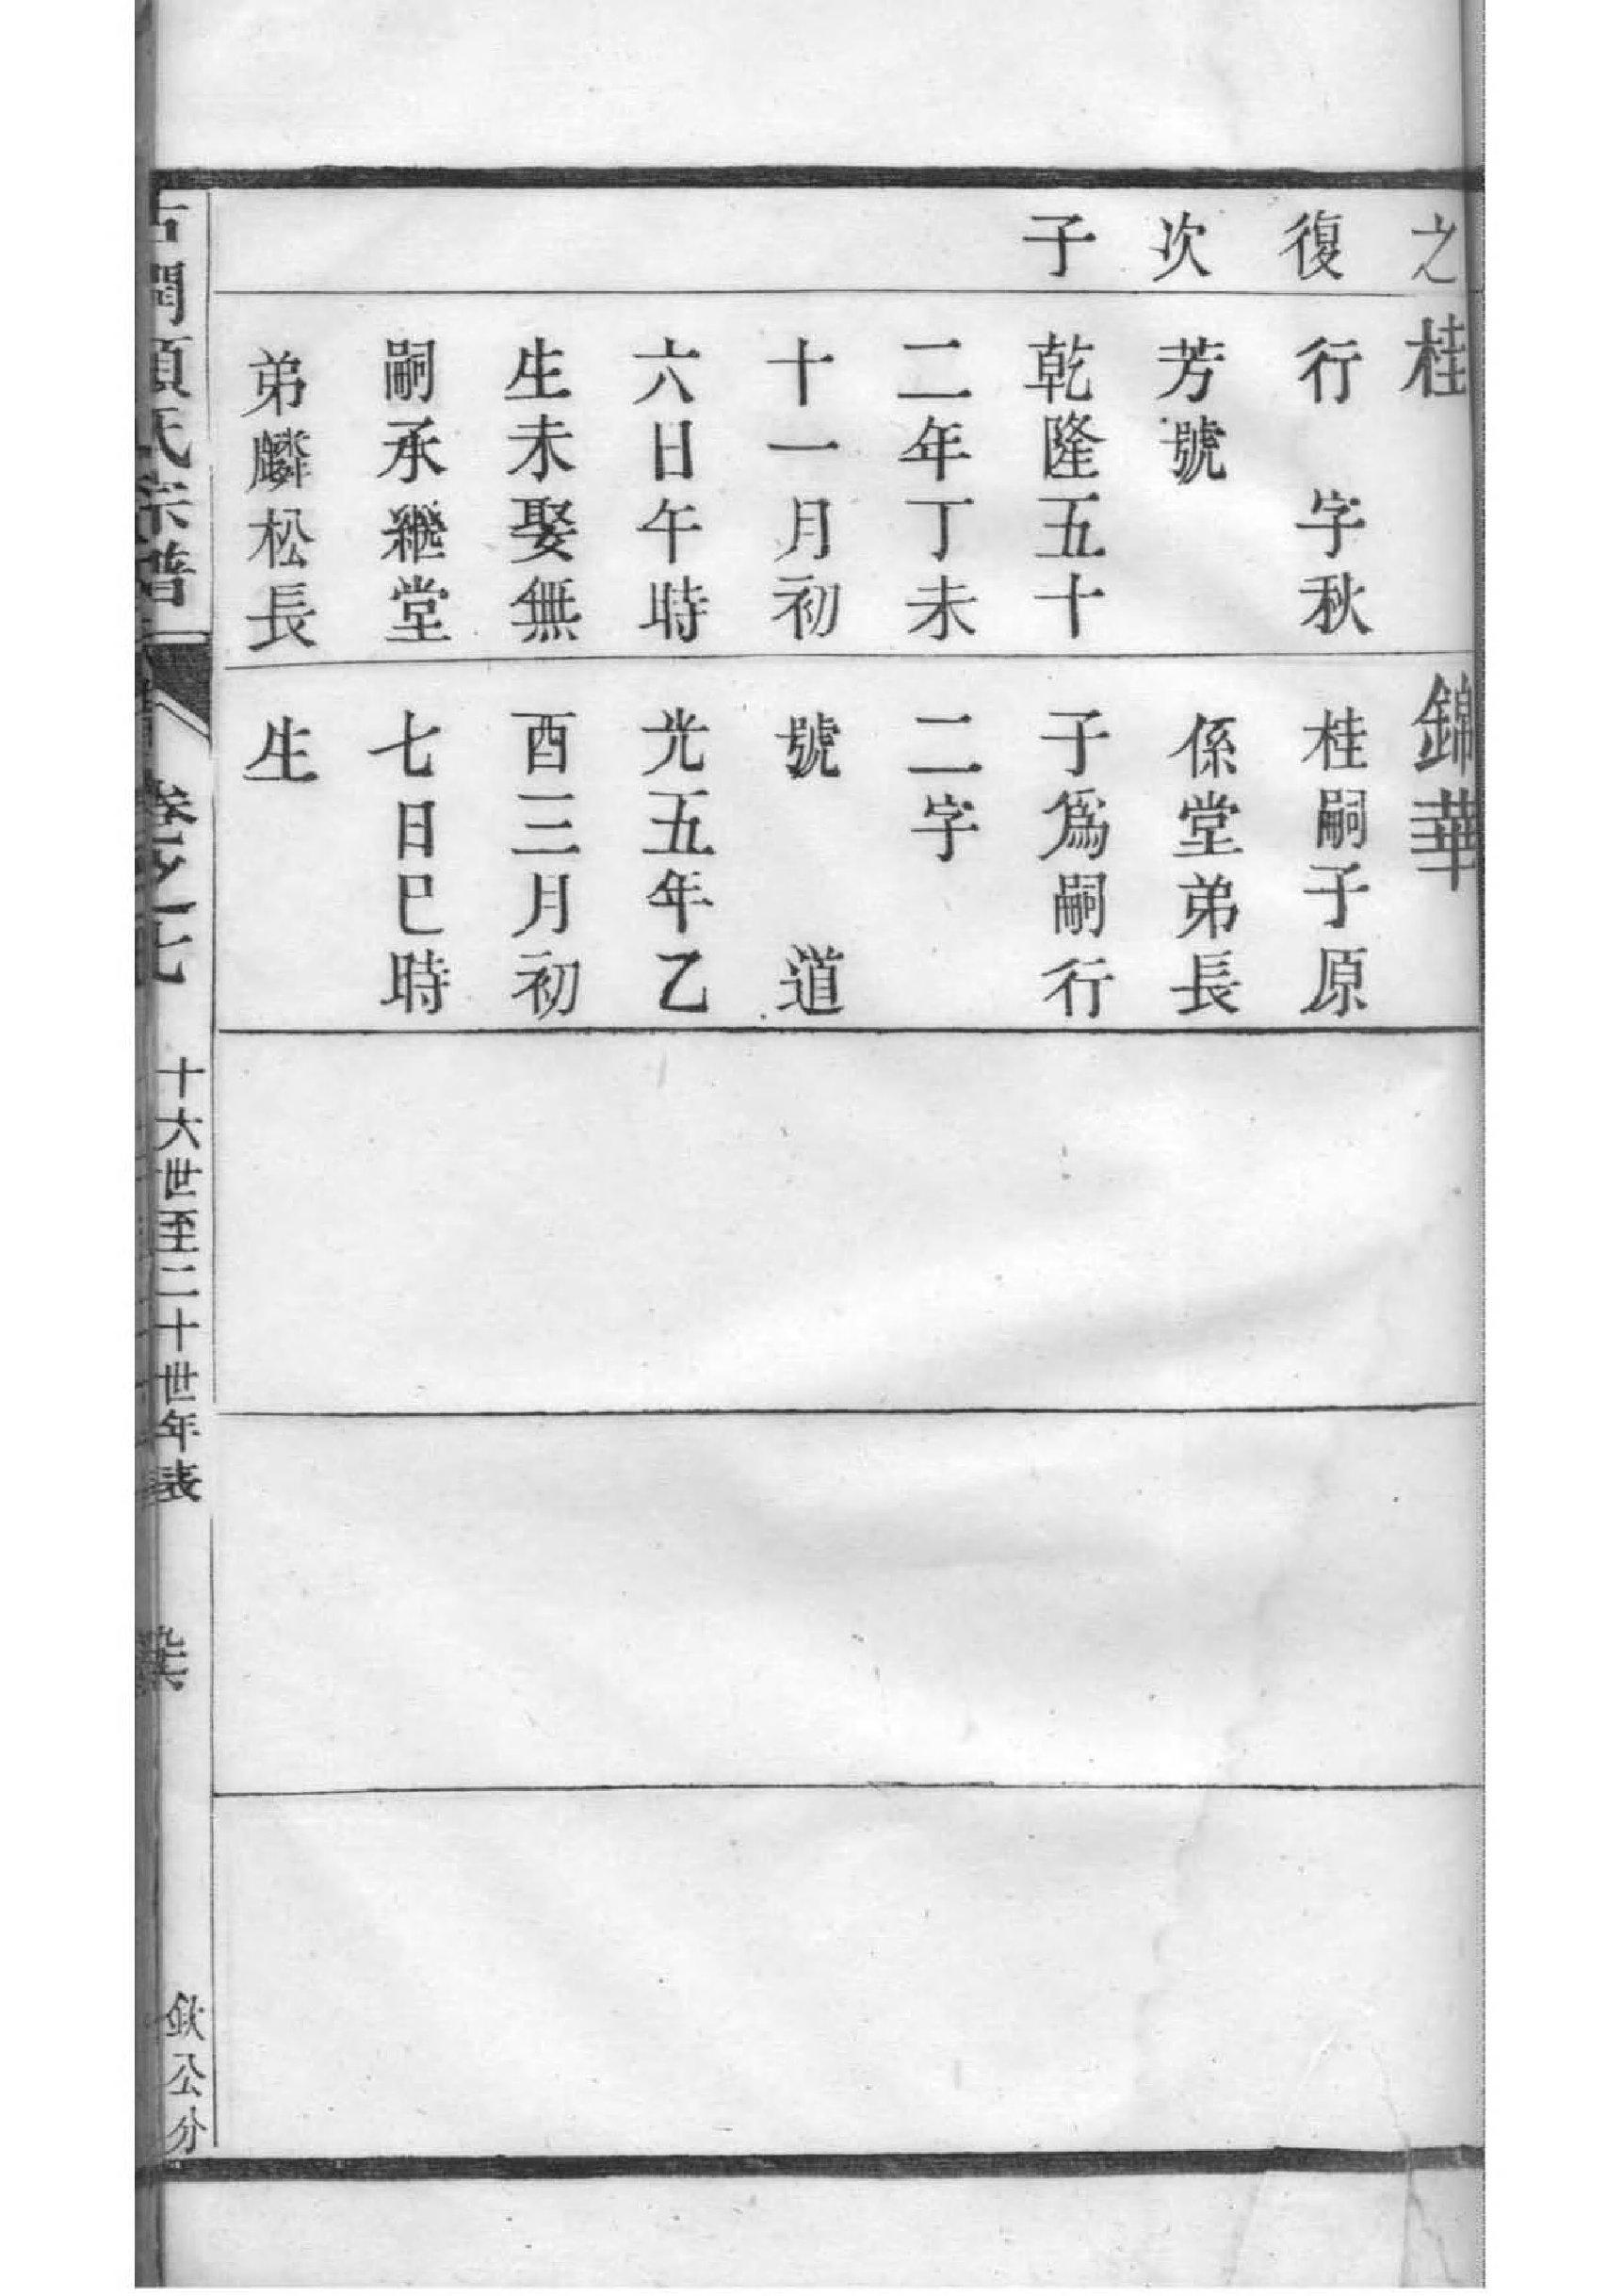 之
復
次
子
桂
行 字秋
芳號
乾隆五十
二年丁未
十一月初
六日午時
生未娶無
嗣承繼堂
弟麟松長
錦華
桂嗣子原
係堂弟長
子為嗣行
二字
號 道
光五年乙
酉三月初
七日巳時
生
項氏宗譜
卷之七
十六世至二十世年表
欽公分